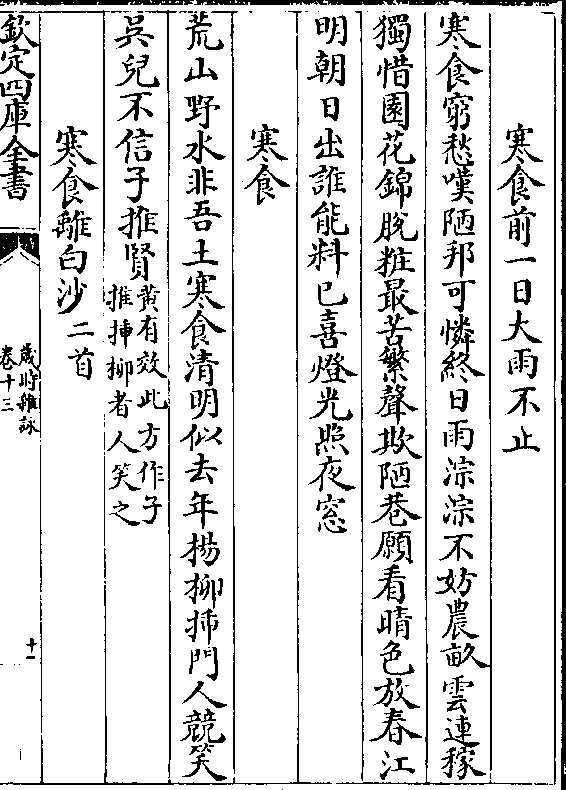 寒食前一日大雨不止
寒食窮愁嘆陋邦可憐終日雨淙淙不妨農畝雲連稼
獨惜園花錦脫粧最苦繁聲欺陋巷願看晴色放春江
明朝日出誰能料已喜燈光照夜窓
寒食
荒山野水非吾土寒食清明似去年楊柳揷門人競笑
吳兒不信子推賢黄有效此方作子
推揷柳者人笑之
寒食離白沙二首
欽定四庫全書
歲時雜詠
卷十三
十一